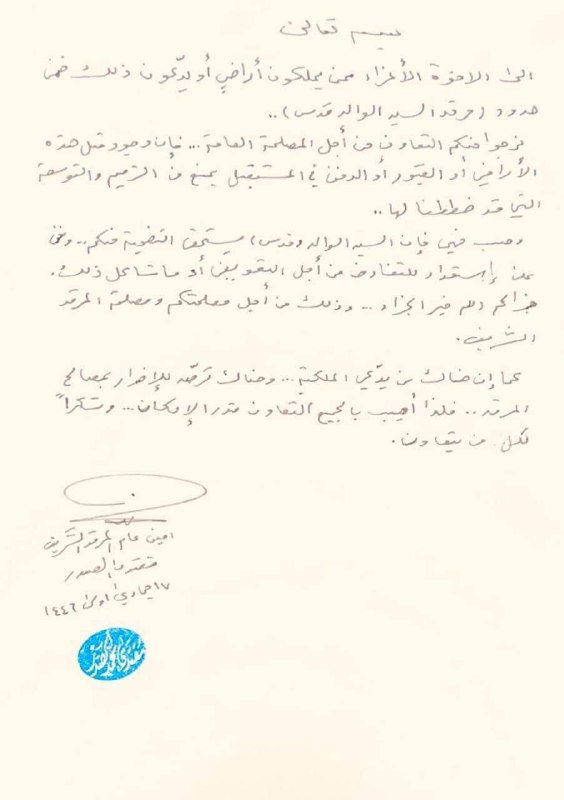 بسمه تعالى
الى الاخوة الأعزاء ممن يملكون أراضٍ أو يدّعون ذلك ضمن
حدود (مرقد السيد الوالد قدس) ..
نرجوا منكم التعاون من أجل المصلحة العامة ... فإن وجود مثل هذه
الأراضي أو القبور أو الدفن في المستقبل يمنع من الترميم والتوسعة
التي قد خططنا لها ..
وحسب فهمي فإن السيد الوالد (قدس) يستحق التضحية منكم .. ونحن
على إستعداد للتفاوض من أجل التعويض أو ما شاكل ذلك.
جزاكم الله خير الجزاء ... وذلك من أجل مصلحتكم ومصلحة المرقد
الشريف.
كما إن هناك من يدّعي الملكية ... وهناك ترصّد للإضرار بمصالح
المرقد .. فلذا أهيب بالجميع التعاون قدر الإمكان ... وشكراً
لكل من يتعاون.
امين عام المرقد الشريف
مقتدى الصدر
١٧ جمادي اولى ١٤٤٦
مقتدى محمد الصدر